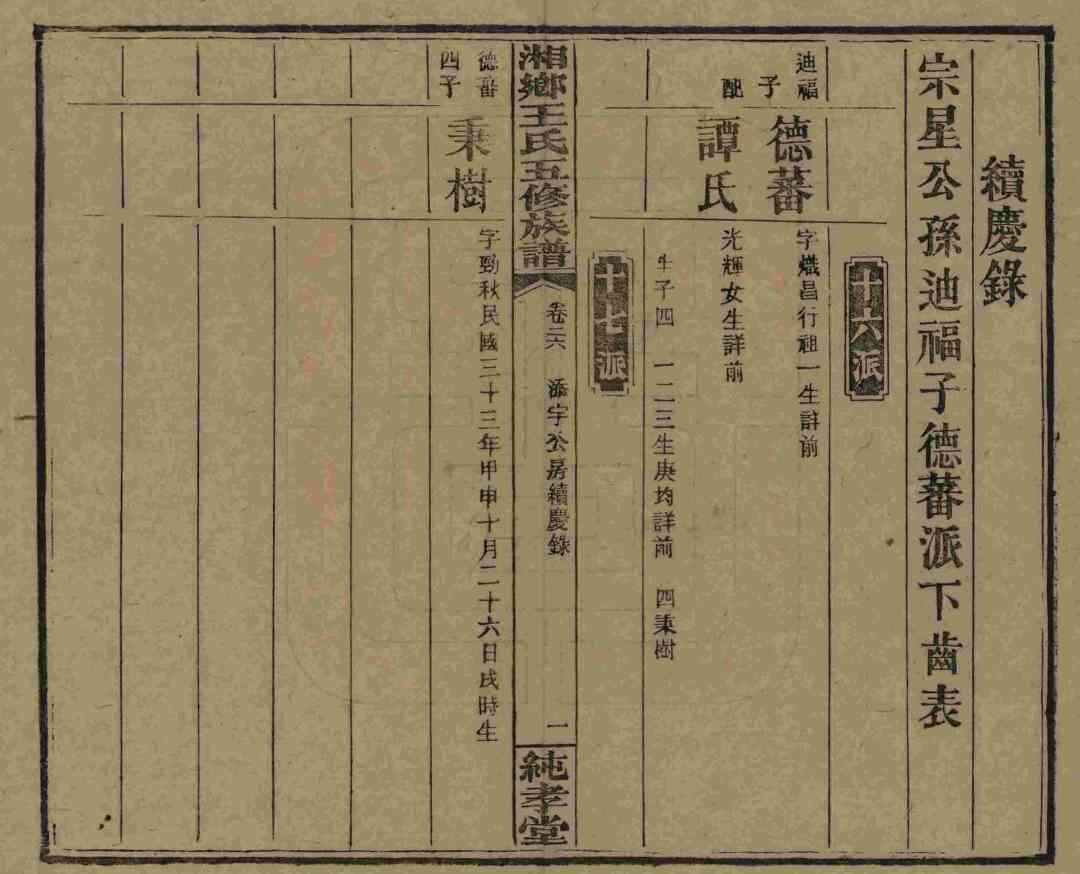 續慶錄
宗星公孫迪福子德蕃派下齒表
十六派
迪福子
德蕃
字熾昌行祖一生詳前
配
譚氏
光輝女生詳前
生子四 一二三生庚均詳前 四秉樹
十七派
湘鄉王氏五修族譜
卷二六 添宇公房續慶錄
一
純孝堂
德蕃四子
秉樹
字勁秋民國三十三年甲申十月二十六日戌時生